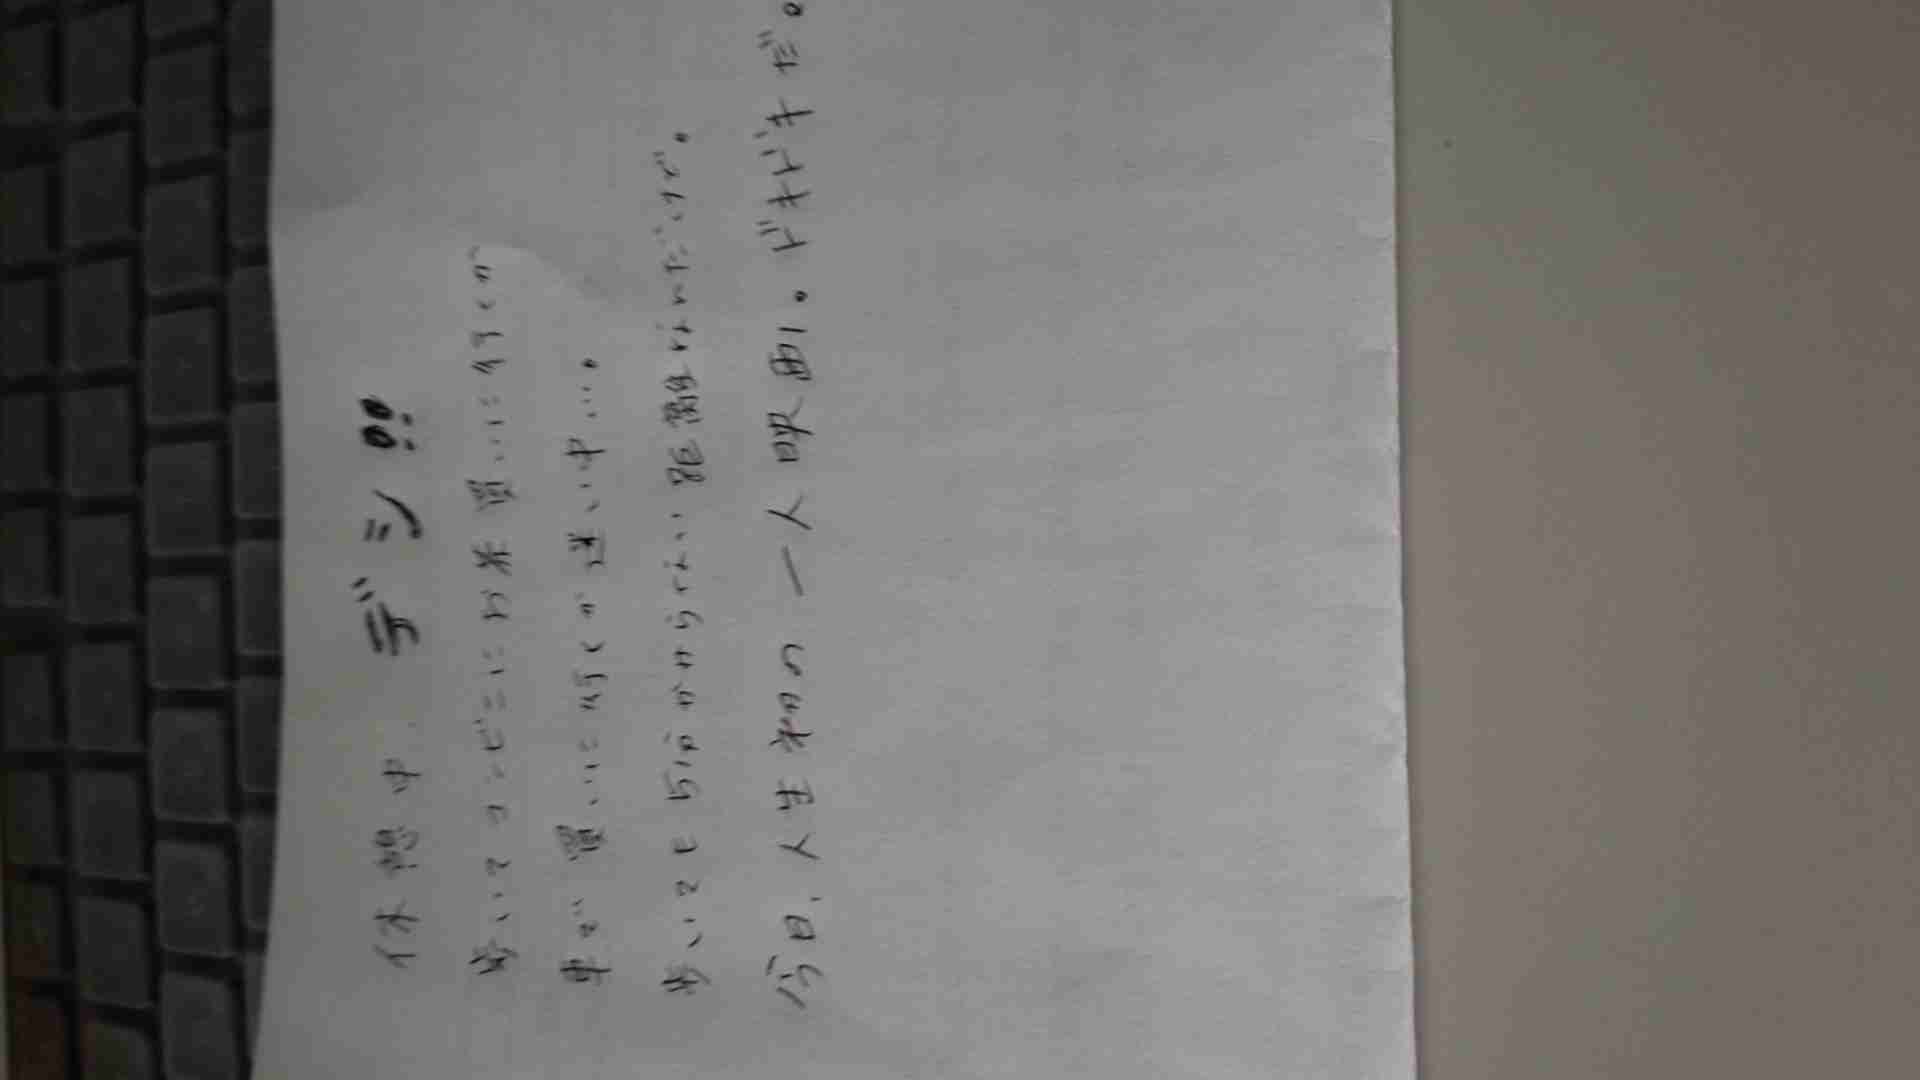 休憩中、デシ!!
歩いてコンビニにお米買いに行くか
車で買いに行くか迷い中…。
歩いても5分かからない距離なんだけど。
今日、人生初の一人映画。ドキドキだ。